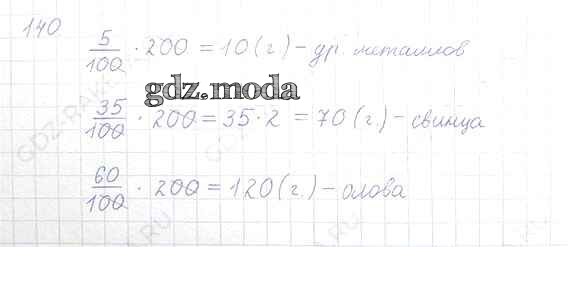 140
5/100 · 200 = 10 (г) - др. металлов
gdz.moda
35/100 · 200 = 35 · 2 = 70 (г.) - свинца
60/100 · 200 = 120 (г.) - олова